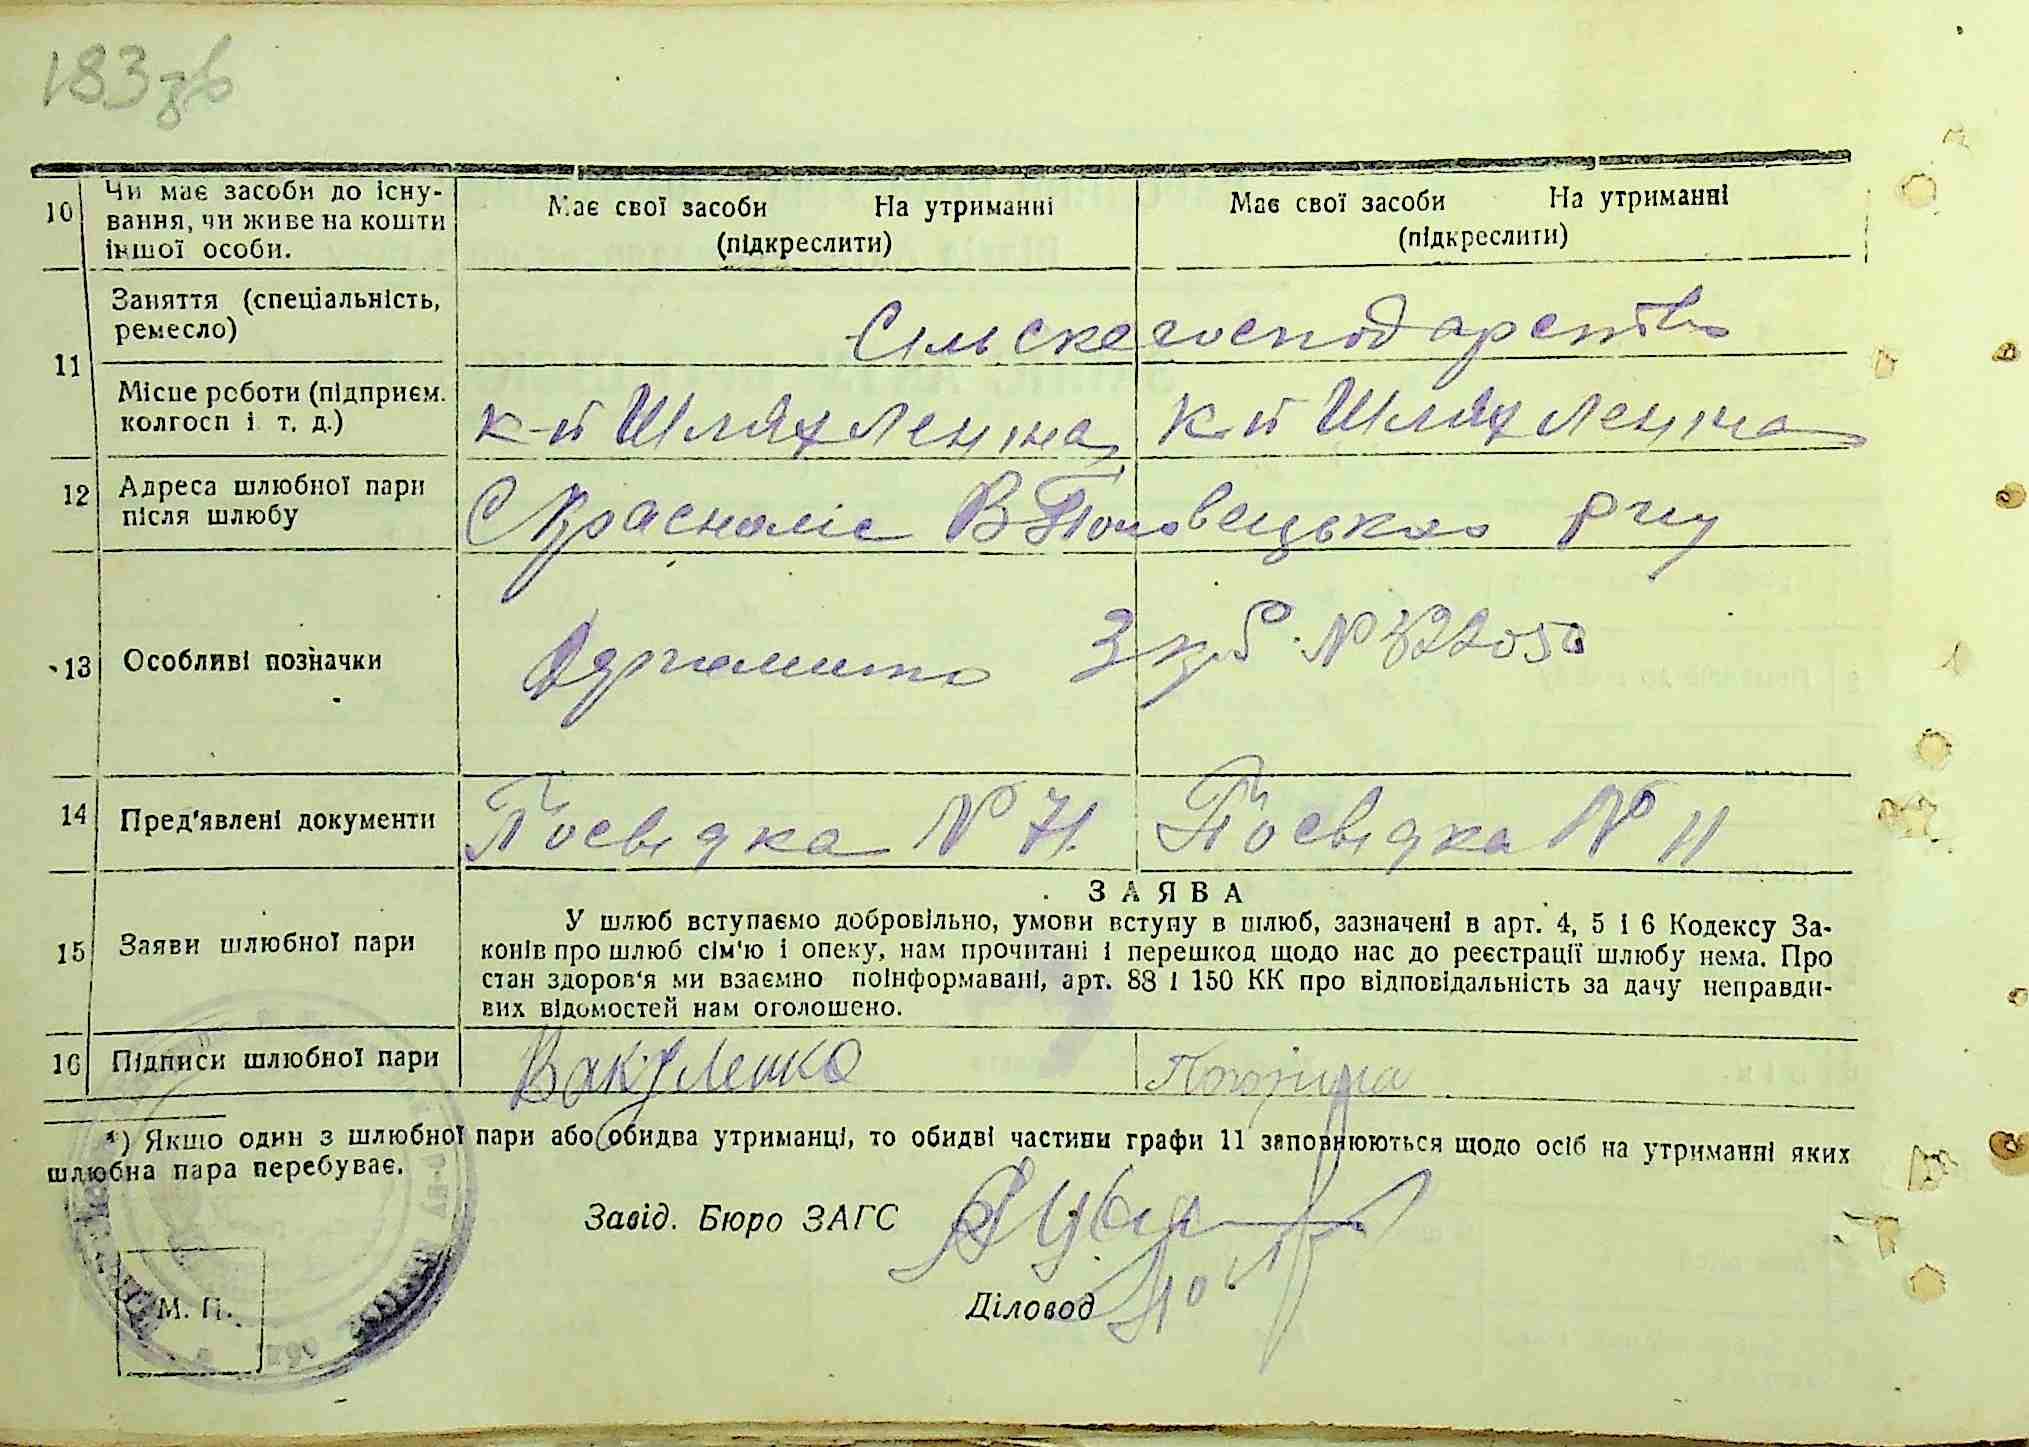 183 зв
10 Чи має засоби до існу-
вання, чи живе на кошти
іншої особи.
Має свої засоби На утриманні
(підкреслити)
Має свої засоби На утриманні
(підкреслити)
11 Заняття (спеціальність,
ремесло)
Сільске господарство
Місце роботи (підприєм.
колгосп і т. д.)
к-п Шлях Леніна
к-п Шлях Леніна
12 Адреса шлюбної пари
після шлюбу
С Красноліс В Половецького р-ну
13 Особливі позначки
Одержано 3 крб. № 322050
14 Пред'явлені документи
Посвідка № 71.
Посвідка № 11
15 Заяви шлюбної пари
ЗАЯВА
У шлюб вступаємо добровільно, умови вступу в шлюб, зазначені в арт. 4, 5 і 6 Кодексу За-
конів про шлюб сім'ю і опеку, нам прочитані і перешкод щодо нас до реєстрації шлюбу нема. Про
стан здоров'я ми взаємно поінформавані, арт. 88 і 150 КК про відповідальність за дачу неправди-
вих відомостей нам оголошено.
16 Підписи шлюбної пари
Вакуленко
*) Якщо один з шлюбної пари або обидва утриманці, то обидві частини графи 11 заповнюються щодо осіб на утриманні яких
шлюбна пара перебуває.
Завід. Бюро ЗАГС
Діловод
М. П.